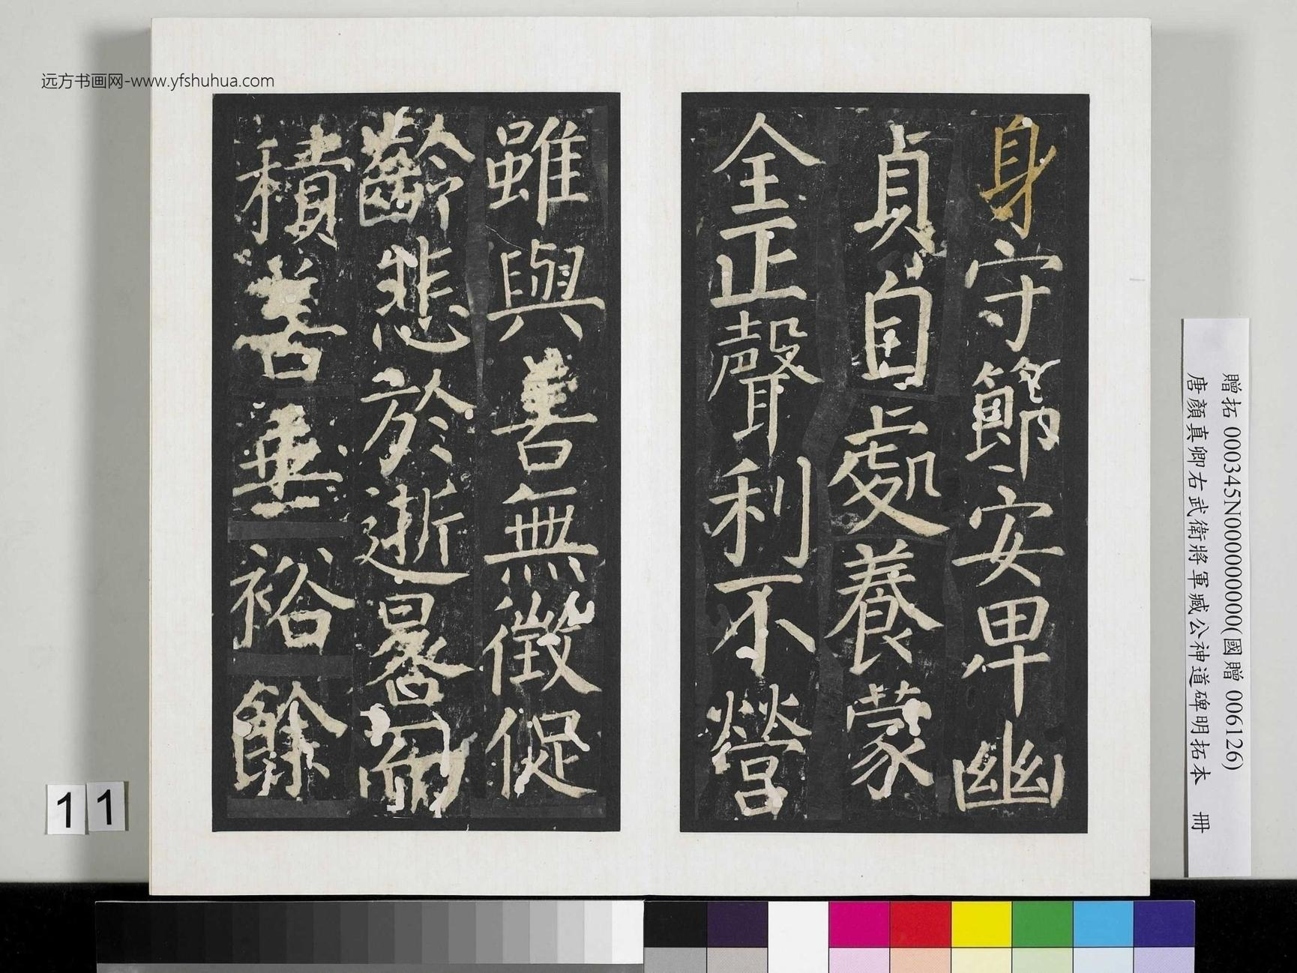 远方书画网-www.yfshuhua.com
身守節安卑幽
貞自處養蒙
全正聲利不營
雖與善無徵促
齡悲於逝晷而
積善垂裕餘
贈拓 000345N000000000(國贈 006126)
唐顏真卿右武衛將軍臧公神道碑明拓本 冊
11